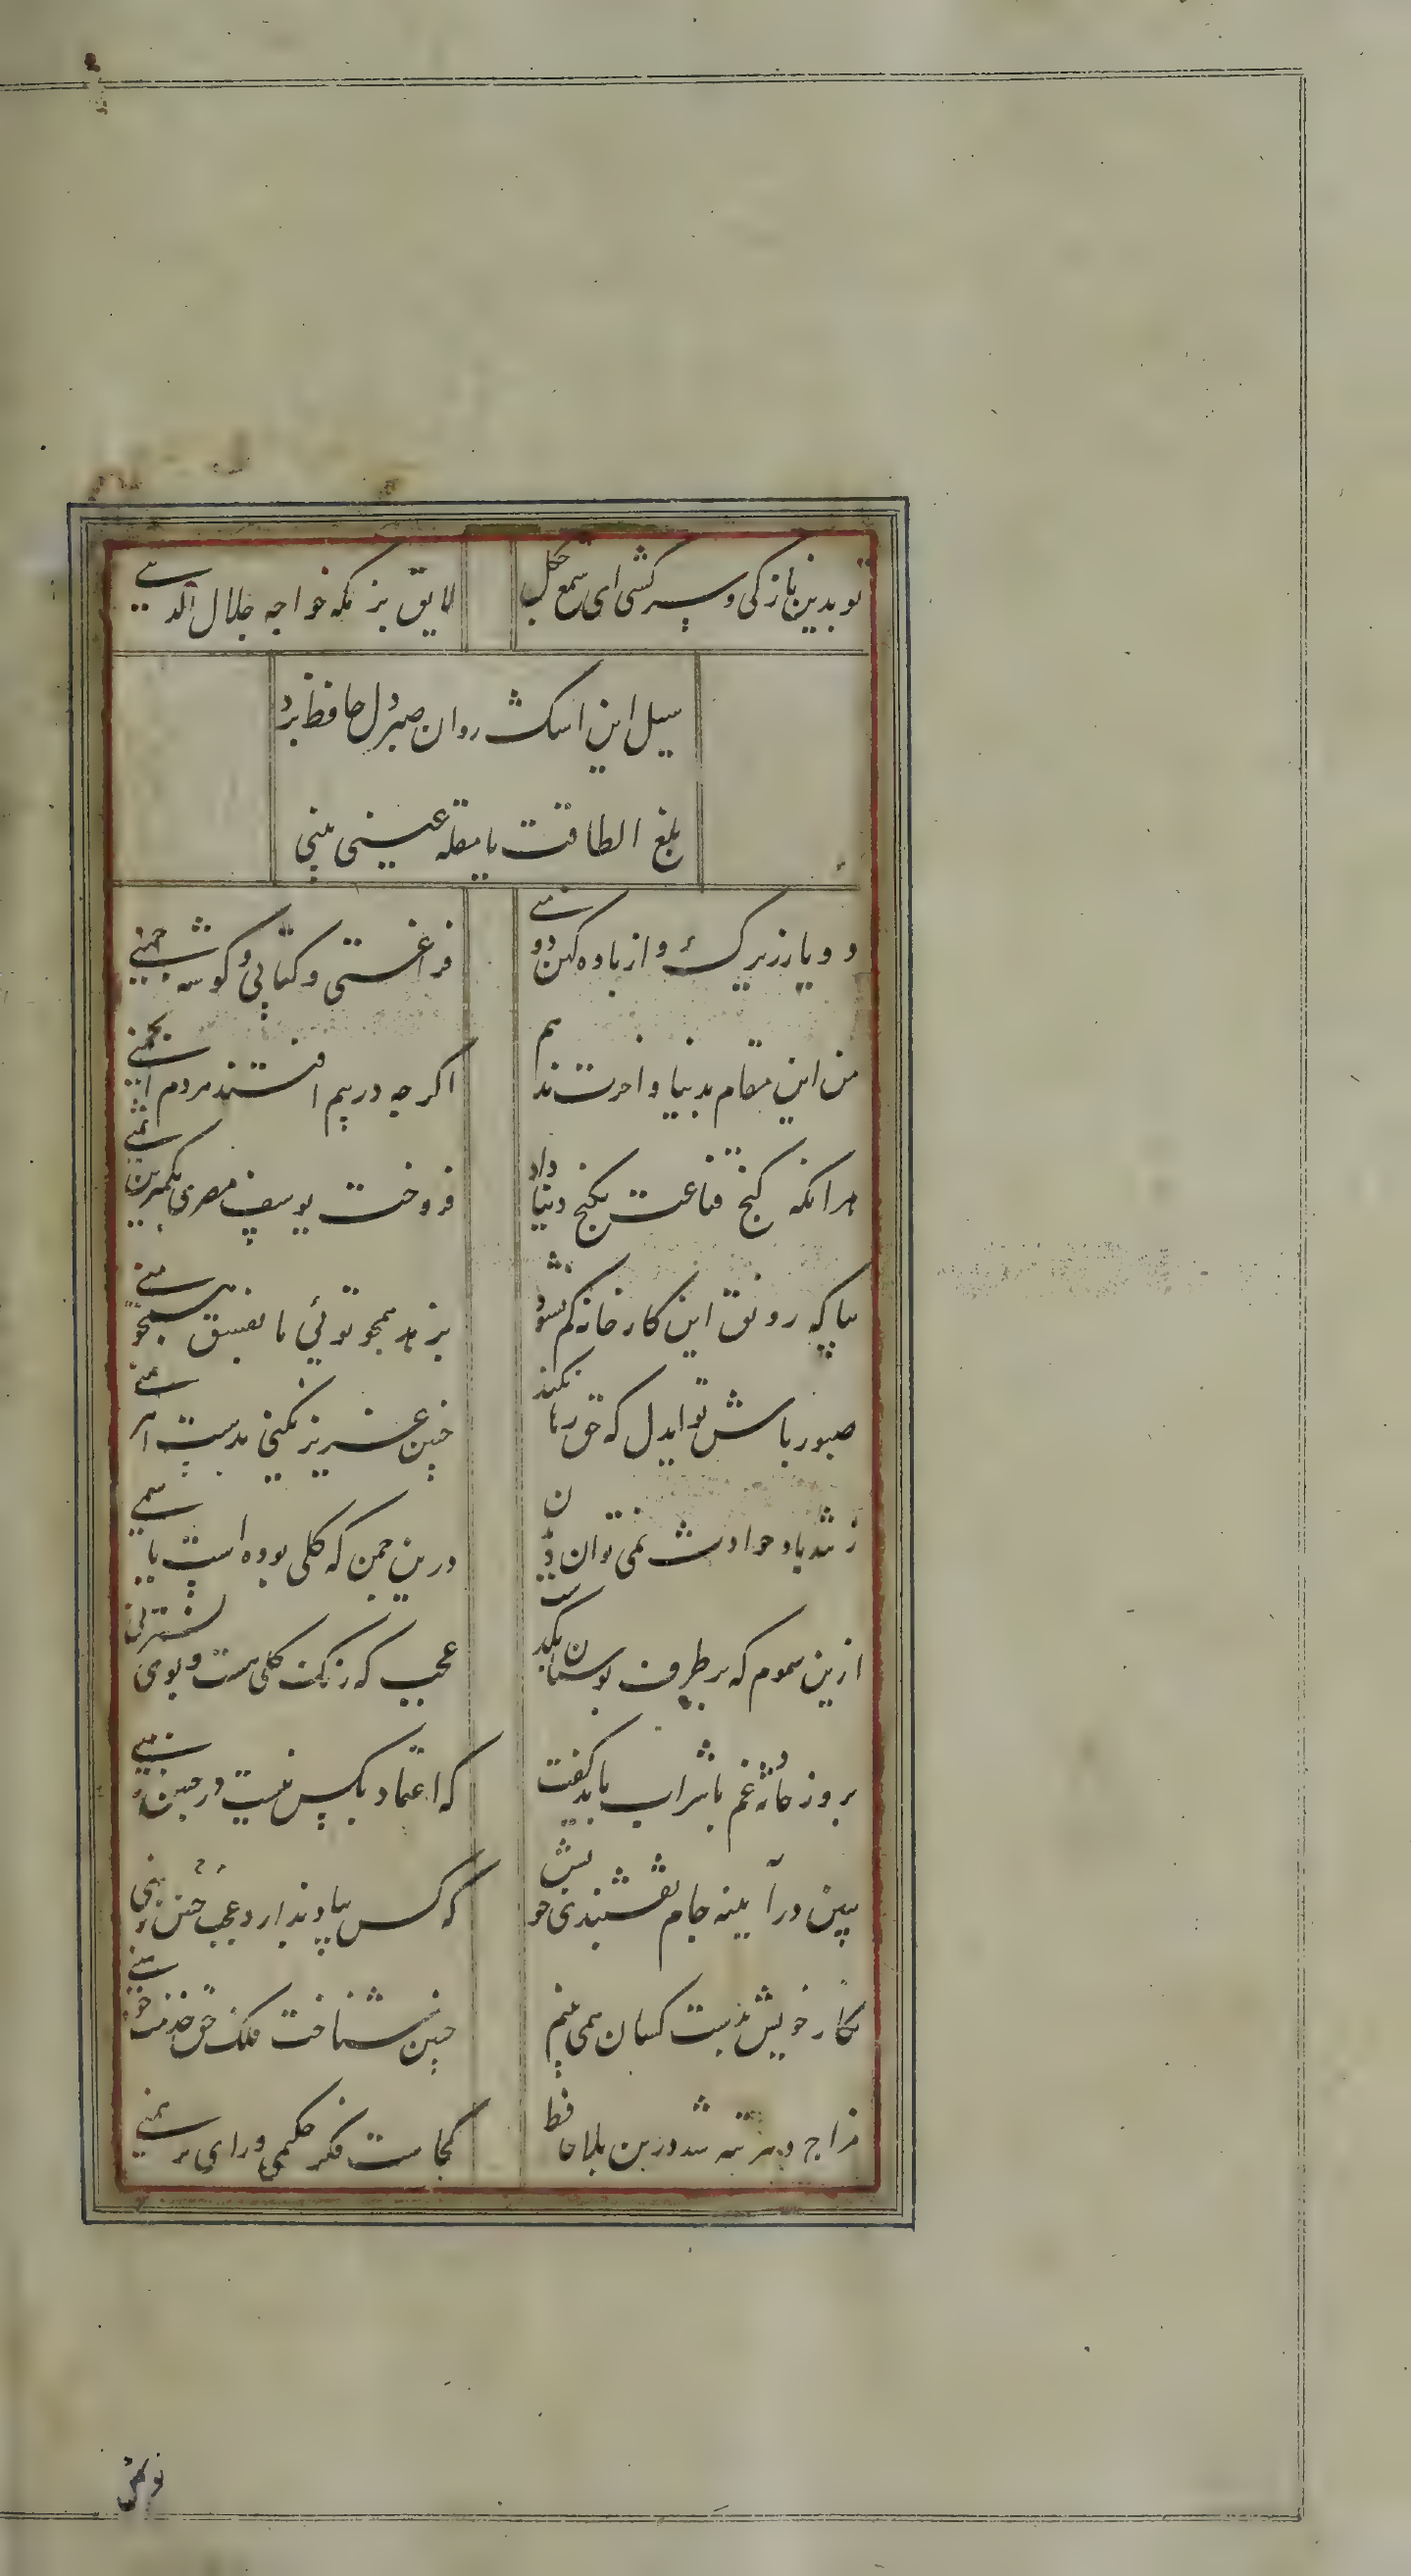 تو بدین نازکی و سرکشی ای شمع چکل
لایق بزمکه خواجه جلال الدینی
سیل این اشک روان صبر دل حافظ برد
بلغ الطاقت یا مقلة عینی بینی
دو یار زیرک و از باده کهن دو منی
فراغتی و کتابی و کوشه چمنی
من این مقام بدنیا و اخرت ندهم
اکر چه در پیم افتند مردم انجمنی
هرانکه کنج قناعت بکنج دنیا داد
فروخت یوسف مصری بکمترین ثمنی
بیا که رونق این کارخانه کم نشود
بزهد همچو توئی یا بفسق همچو منی
صبور باش تو ایدل که حق رها نکند
چنین عزیز نکینی بدست اهرمنی
ز تند باد حوادث نمی توان دیدن
درین چمن که کلی بوده است یا سمنی
ازین سموم که بر طرف بوستان بکذشت
عجب که رنک کلی هست و بوی نسترنی
بروز حادثه غم با شراب باید کفت
که اعتماد بکس نیست در چنین زمنی
ببین در آیینه جام نقشبندی خویش
که کس بیاد ندارد عجب چنین زمنی
نکار خویش بدست کسان همی بینم
چنین شناخت فلک حق خدمت چو منی
مزاج دهر تبه شد درین بلا حافظ
کجاست فکر حکیمی و رای برهمنی